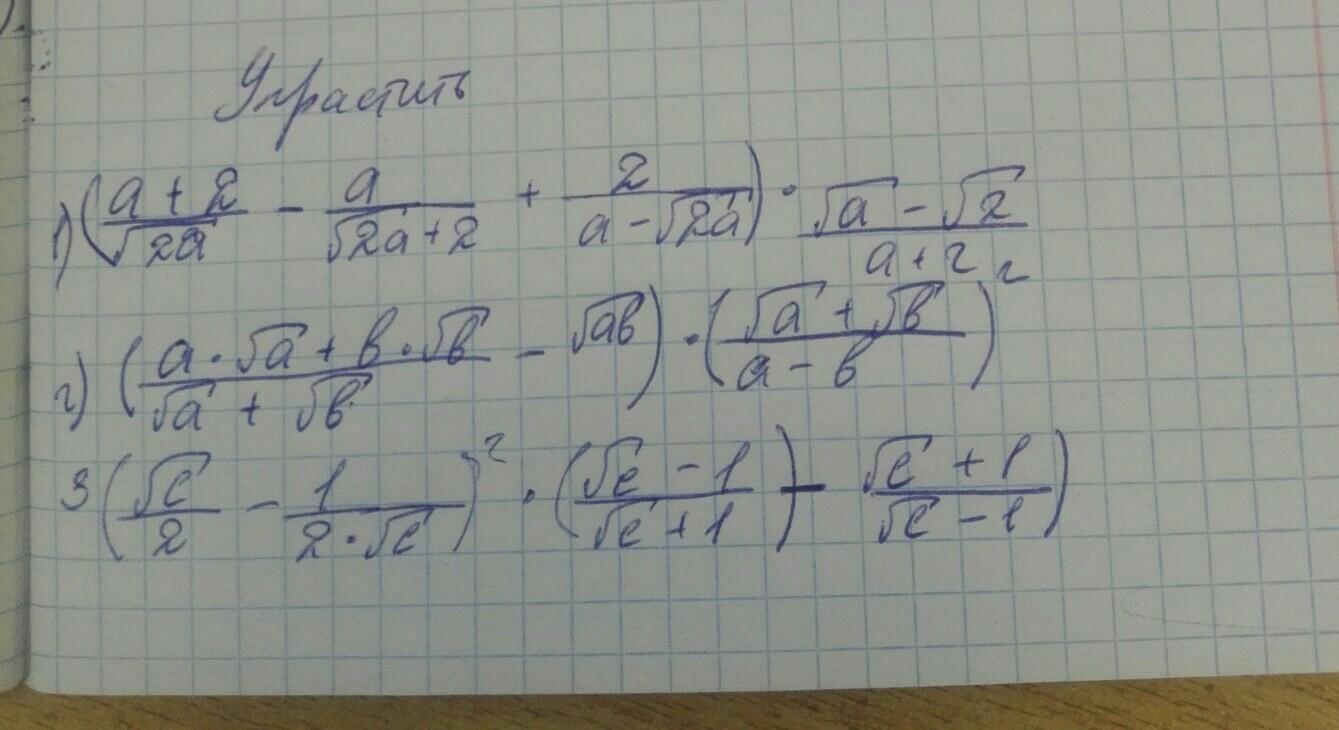 Упрастить
1) ( (a + 2)/√2a − a/(√2a + 2) + 2/(a − √2a) ) · (√a − √2)/(a + 2)
2) ( (a · √a + b · √b)/(√a + √b) − √ab ) · ( (√a + √b)/(a − b) )²
3 ( √c/2 − 1/(2 · √c) )² · ( (√c − 1)/(√c + 1) ) − (√c + 1)/(√c − 1) )